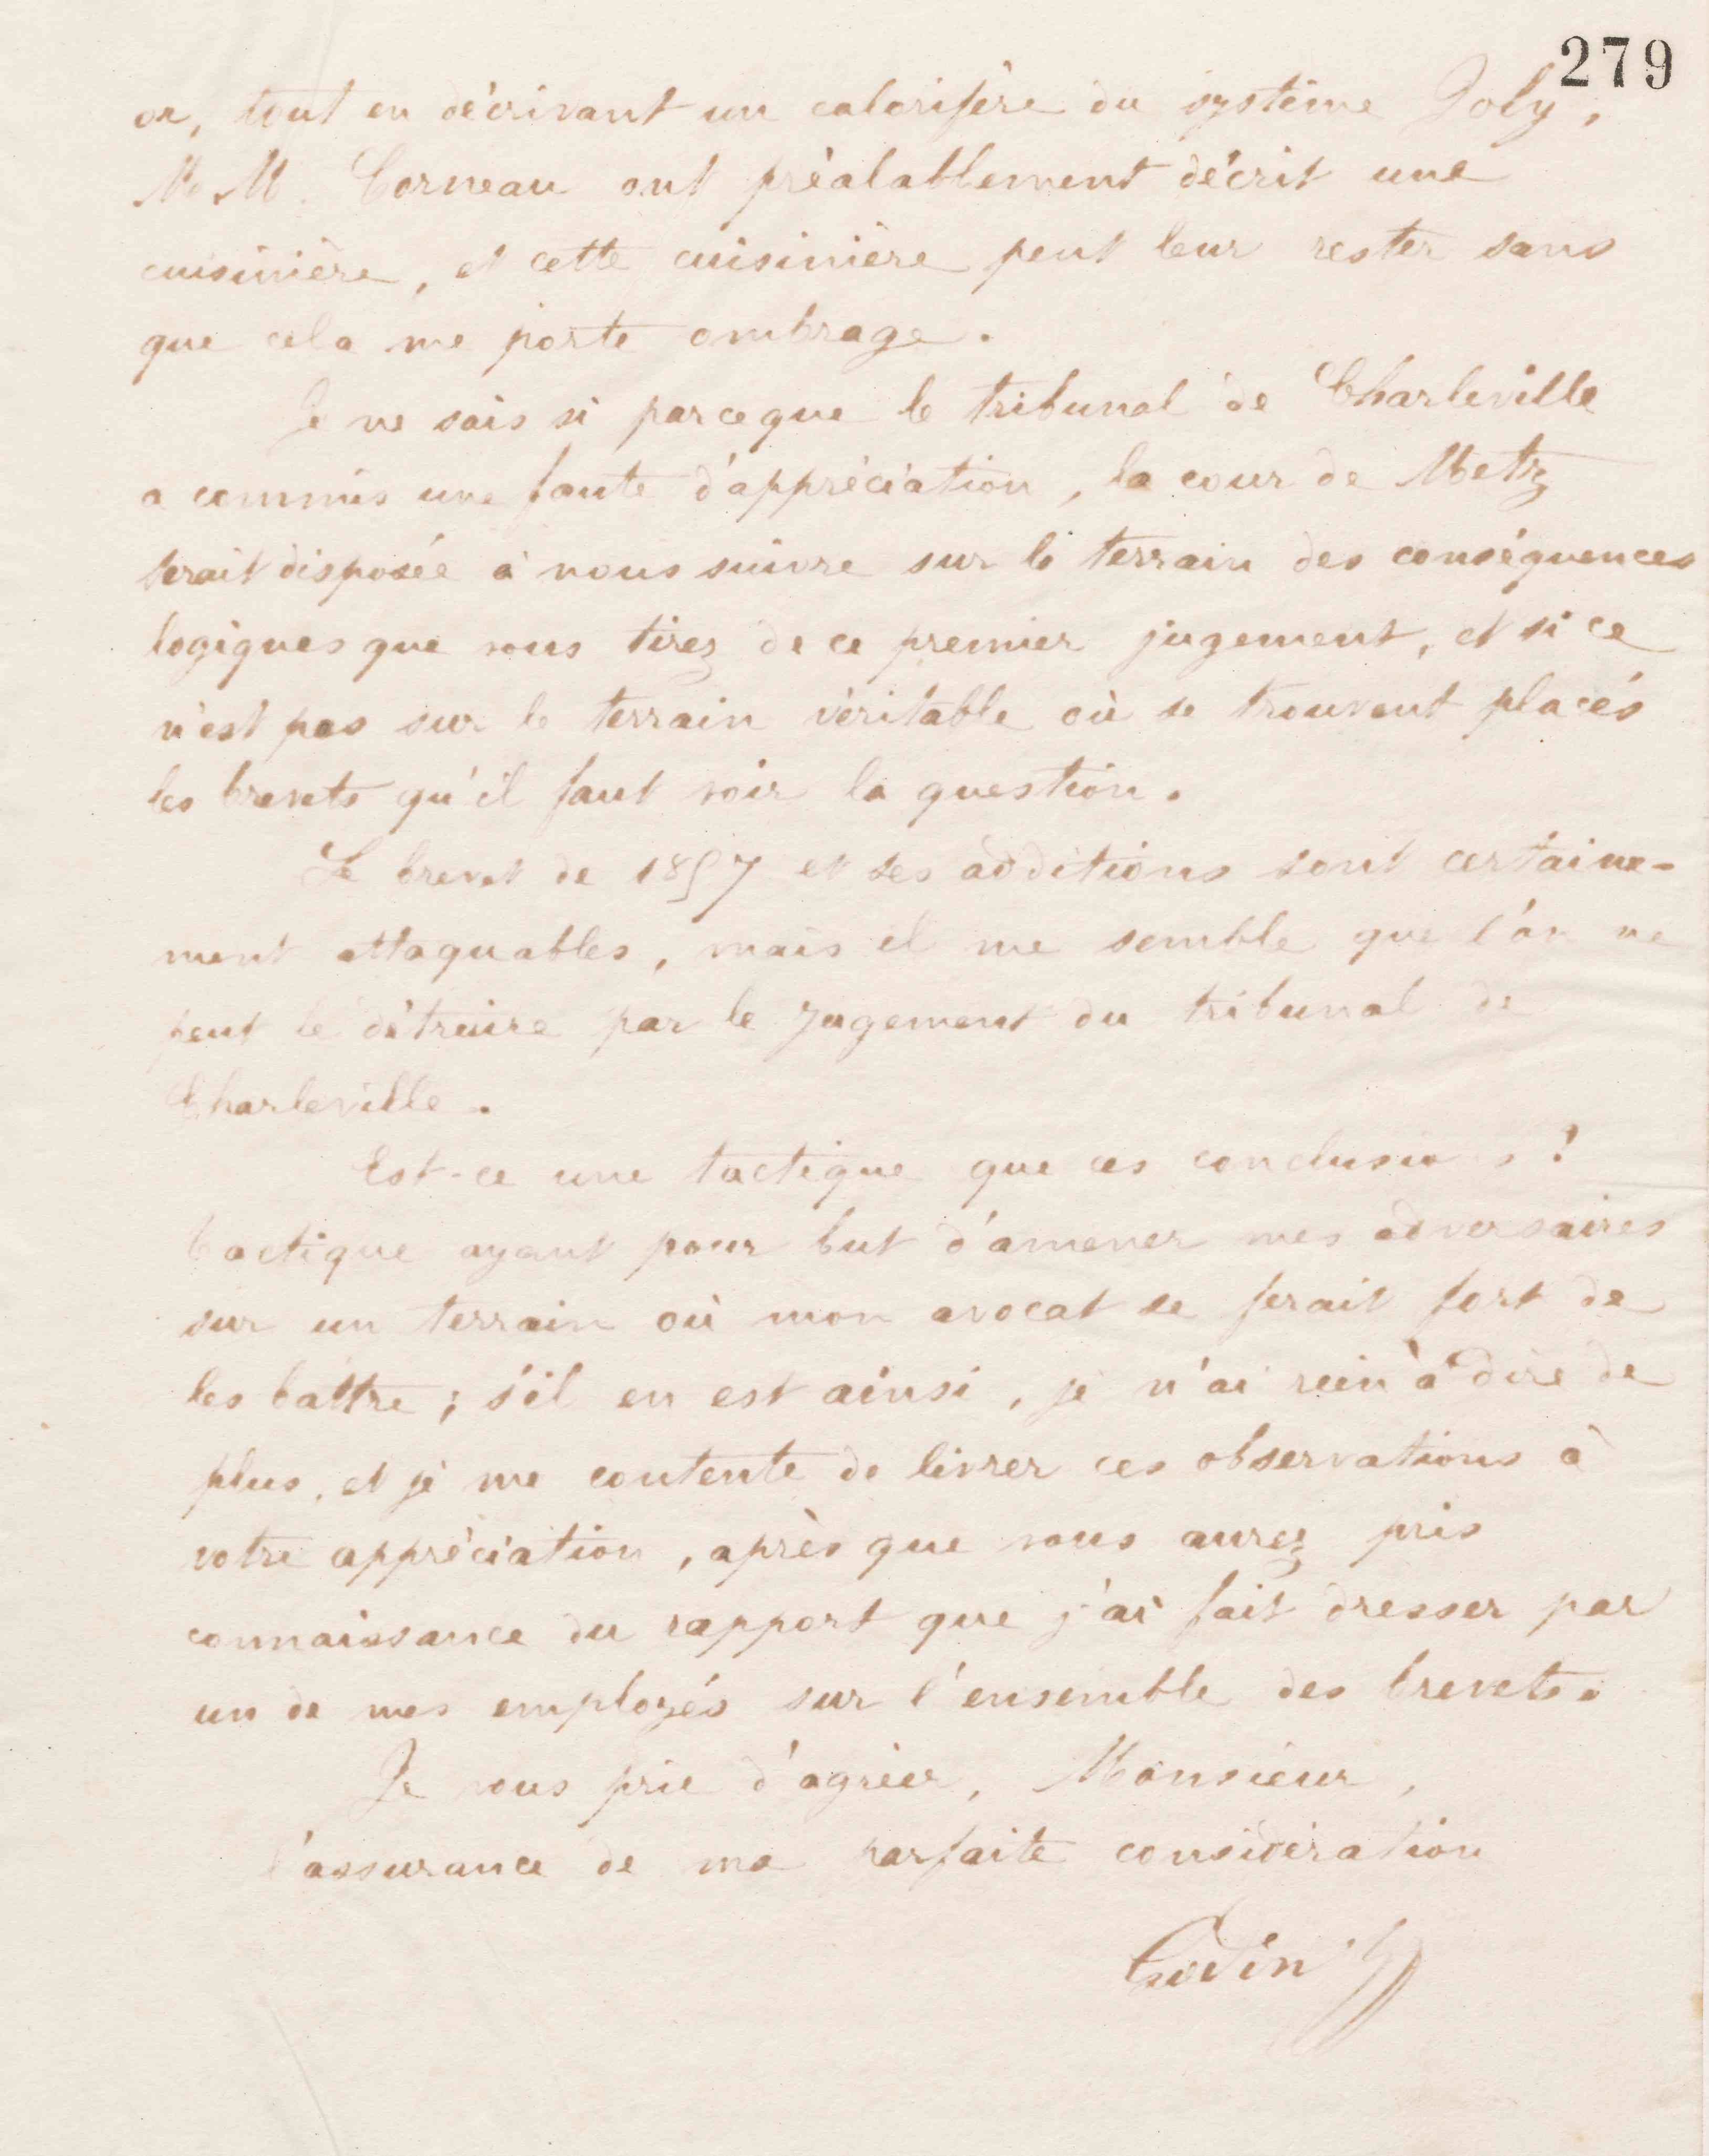 279
or, tout en décrivant un calorifère du système Joly,
M.M. Corneau ont préalablement décrit une
cuisinière, et cette cuisinière peut leur rester sans
que cela me porte ombrage.
Je ne sais si parceque le tribunal de Charleville
a commis une faute d'appréciation, la cour de Metz
serait disposée à nous suivre sur le terrain des conséquences
logiques que vous tirez de ce premier jugement, et si ce
n'est pas sur le terrain véritable où se trouvent placés
les brevets qu'il faut voir la question.
Le brevet de 1857 et ses additions sont certaine-
ment attaquables, mais il me semble que l'on ne
peut le détruire par le jugement du tribunal de
Charleville.
Est-ce une tactique que ces conclusions?
Tactique ayant pour but d'amener mes adversaires
sur un terrain où mon avocat se ferait fort de
les battre; s'il en est ainsi, je n'ai rien à dire de
plus, et je me contente de livrer ces observations à
votre appréciation, après que vous aurez pris
connaissance du rapport que j'ai fait dresser par
un de mes employés sur l'ensemble des brevets.
Je vous prie d'agréer, Monsieur,
l'assurance de ma parfaite considération
Godin